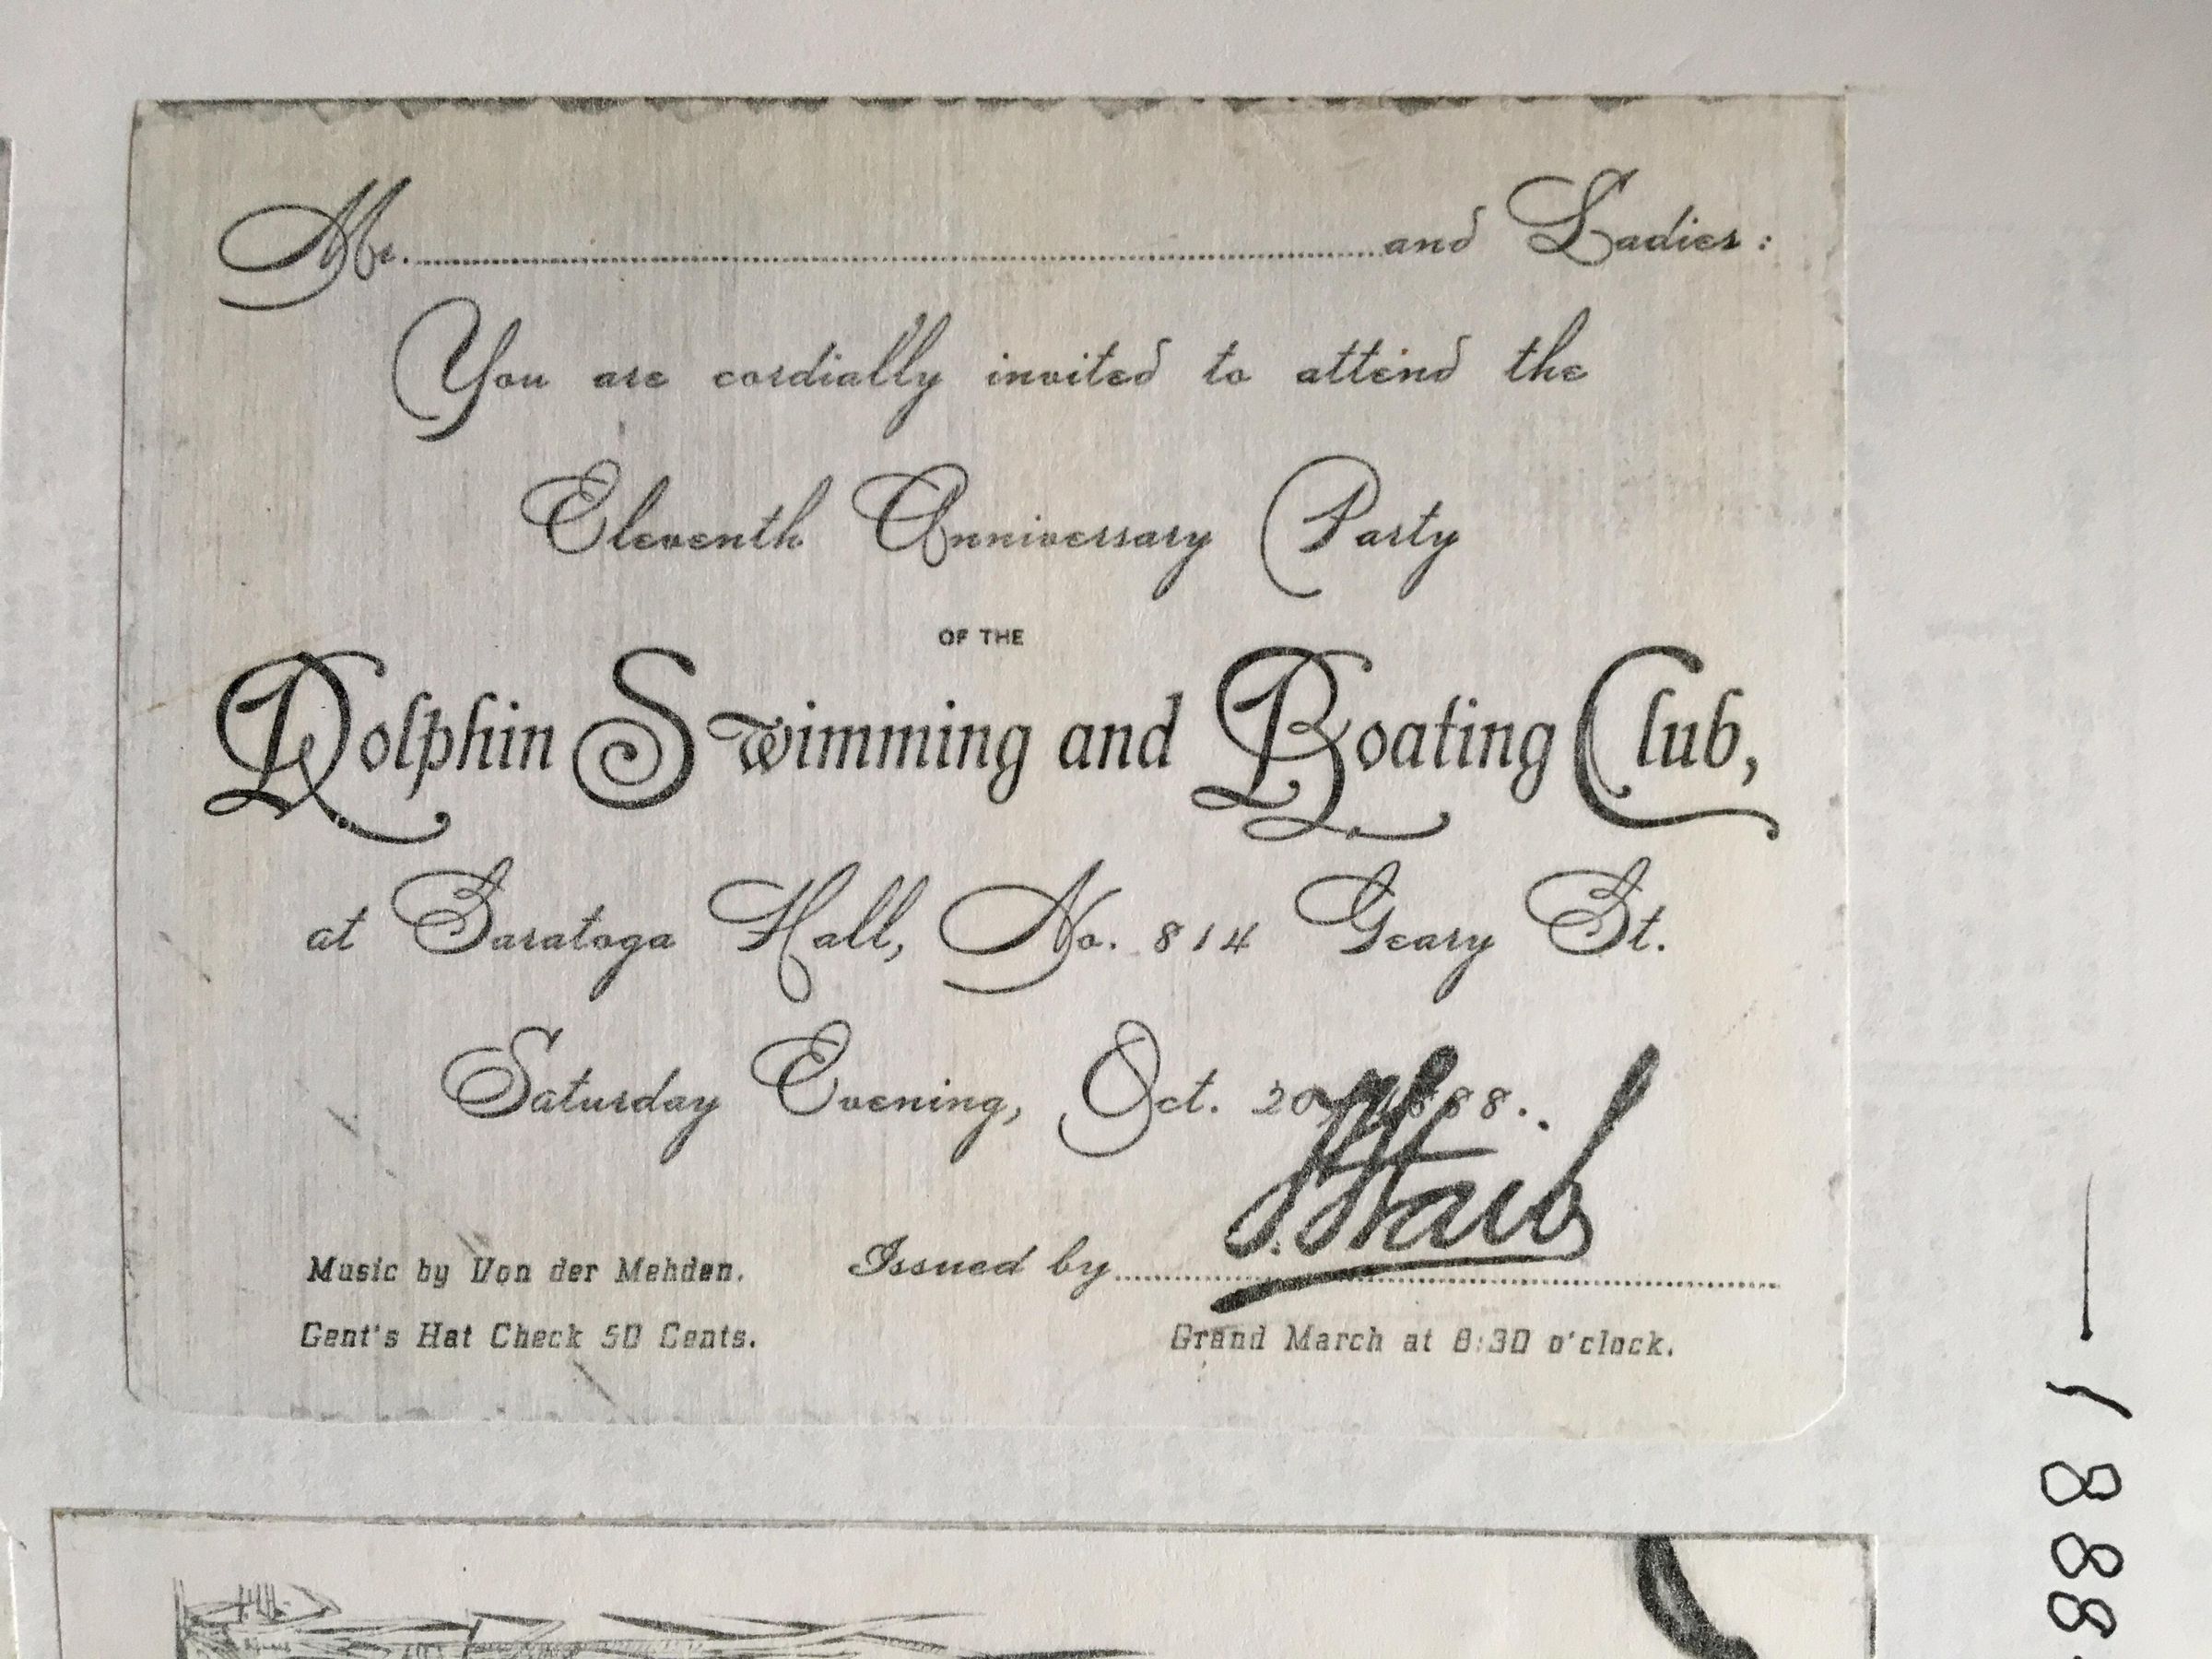 Mr. and Ladies:
You are cordially invited to attend the
Eleventh Anniversary Party
OF THE
Dolphin Swimming and Boating Club,
at Saratoga Hall, No. 814 Geary St.
Saturday Evening, Oct. 20, 1888.
Music by Von der Mehden.
Issued by
Gent's Hat Check 50 Cents.
Grand March at 8:30 o'clock.
1888